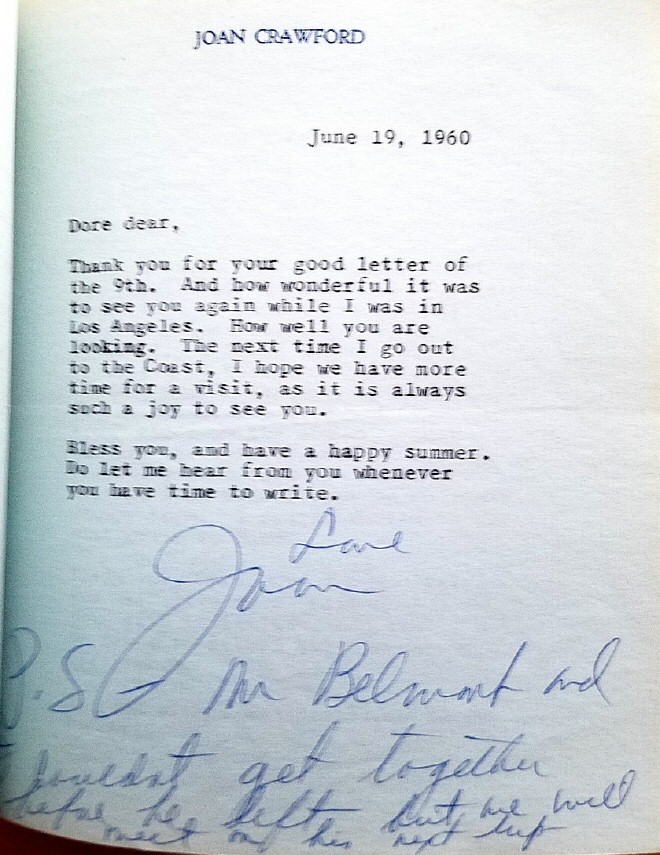 JOAN CRAWFORD
June 19, 1960
Dore dear,
Thank you for your good letter of
the 9th. And how wonderful it was
to see you again while I was in
Los Angeles. How well you are
looking. The next time I go out
to the Coast, I hope we have more
time for a visit, as it is always
such a joy to see you.
Bless you, and have a happy summer.
Do let me hear from you whenever
you have time to write.
Love
Joan
P.S. Mr Belmont and
I couldn't get together
before he left but we will
meet on his next trip